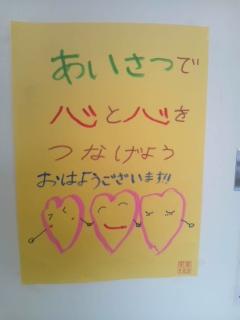 あいさつで
心と心を
つなげよう
おはようございます!!